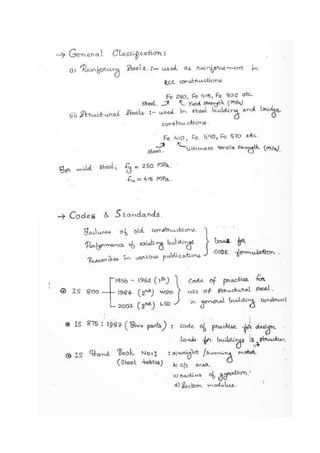 → General Classification :
(i) Reinforcing Steels. :- used as reinforcement in
RCC constructions.
Fe 250, Fe 415, Fe 500 etc.
Steel. Yield strength (MPa)
(ii) Structural Steels :- used in steel building and bridge
constructions.
Fe 410, Fe 540, Fe 570 etc.
steel. Ultimate tensile strength (MPa).
For mild steel, fy = 250 MPa.
fu = 415 MPa.
→ Codes & Standards.
Failures of old constructions.
Performance of existing buildings
Researches in various publications
base for
CODE formulation.
IS 800
1956 - 1962 (1st)
1984 (2nd) WSD
2007 (3rd) LSD
code of practice for
use of structural steel.
in general building construct
IS 875 : 1987 (five parts) : code of practise for design
loads for buildings & structur
IS Hand Book No:1 : a) weight / running meter
(Steel tables) b) c/s area.
c) radius of gyration.
d) Section modulus.